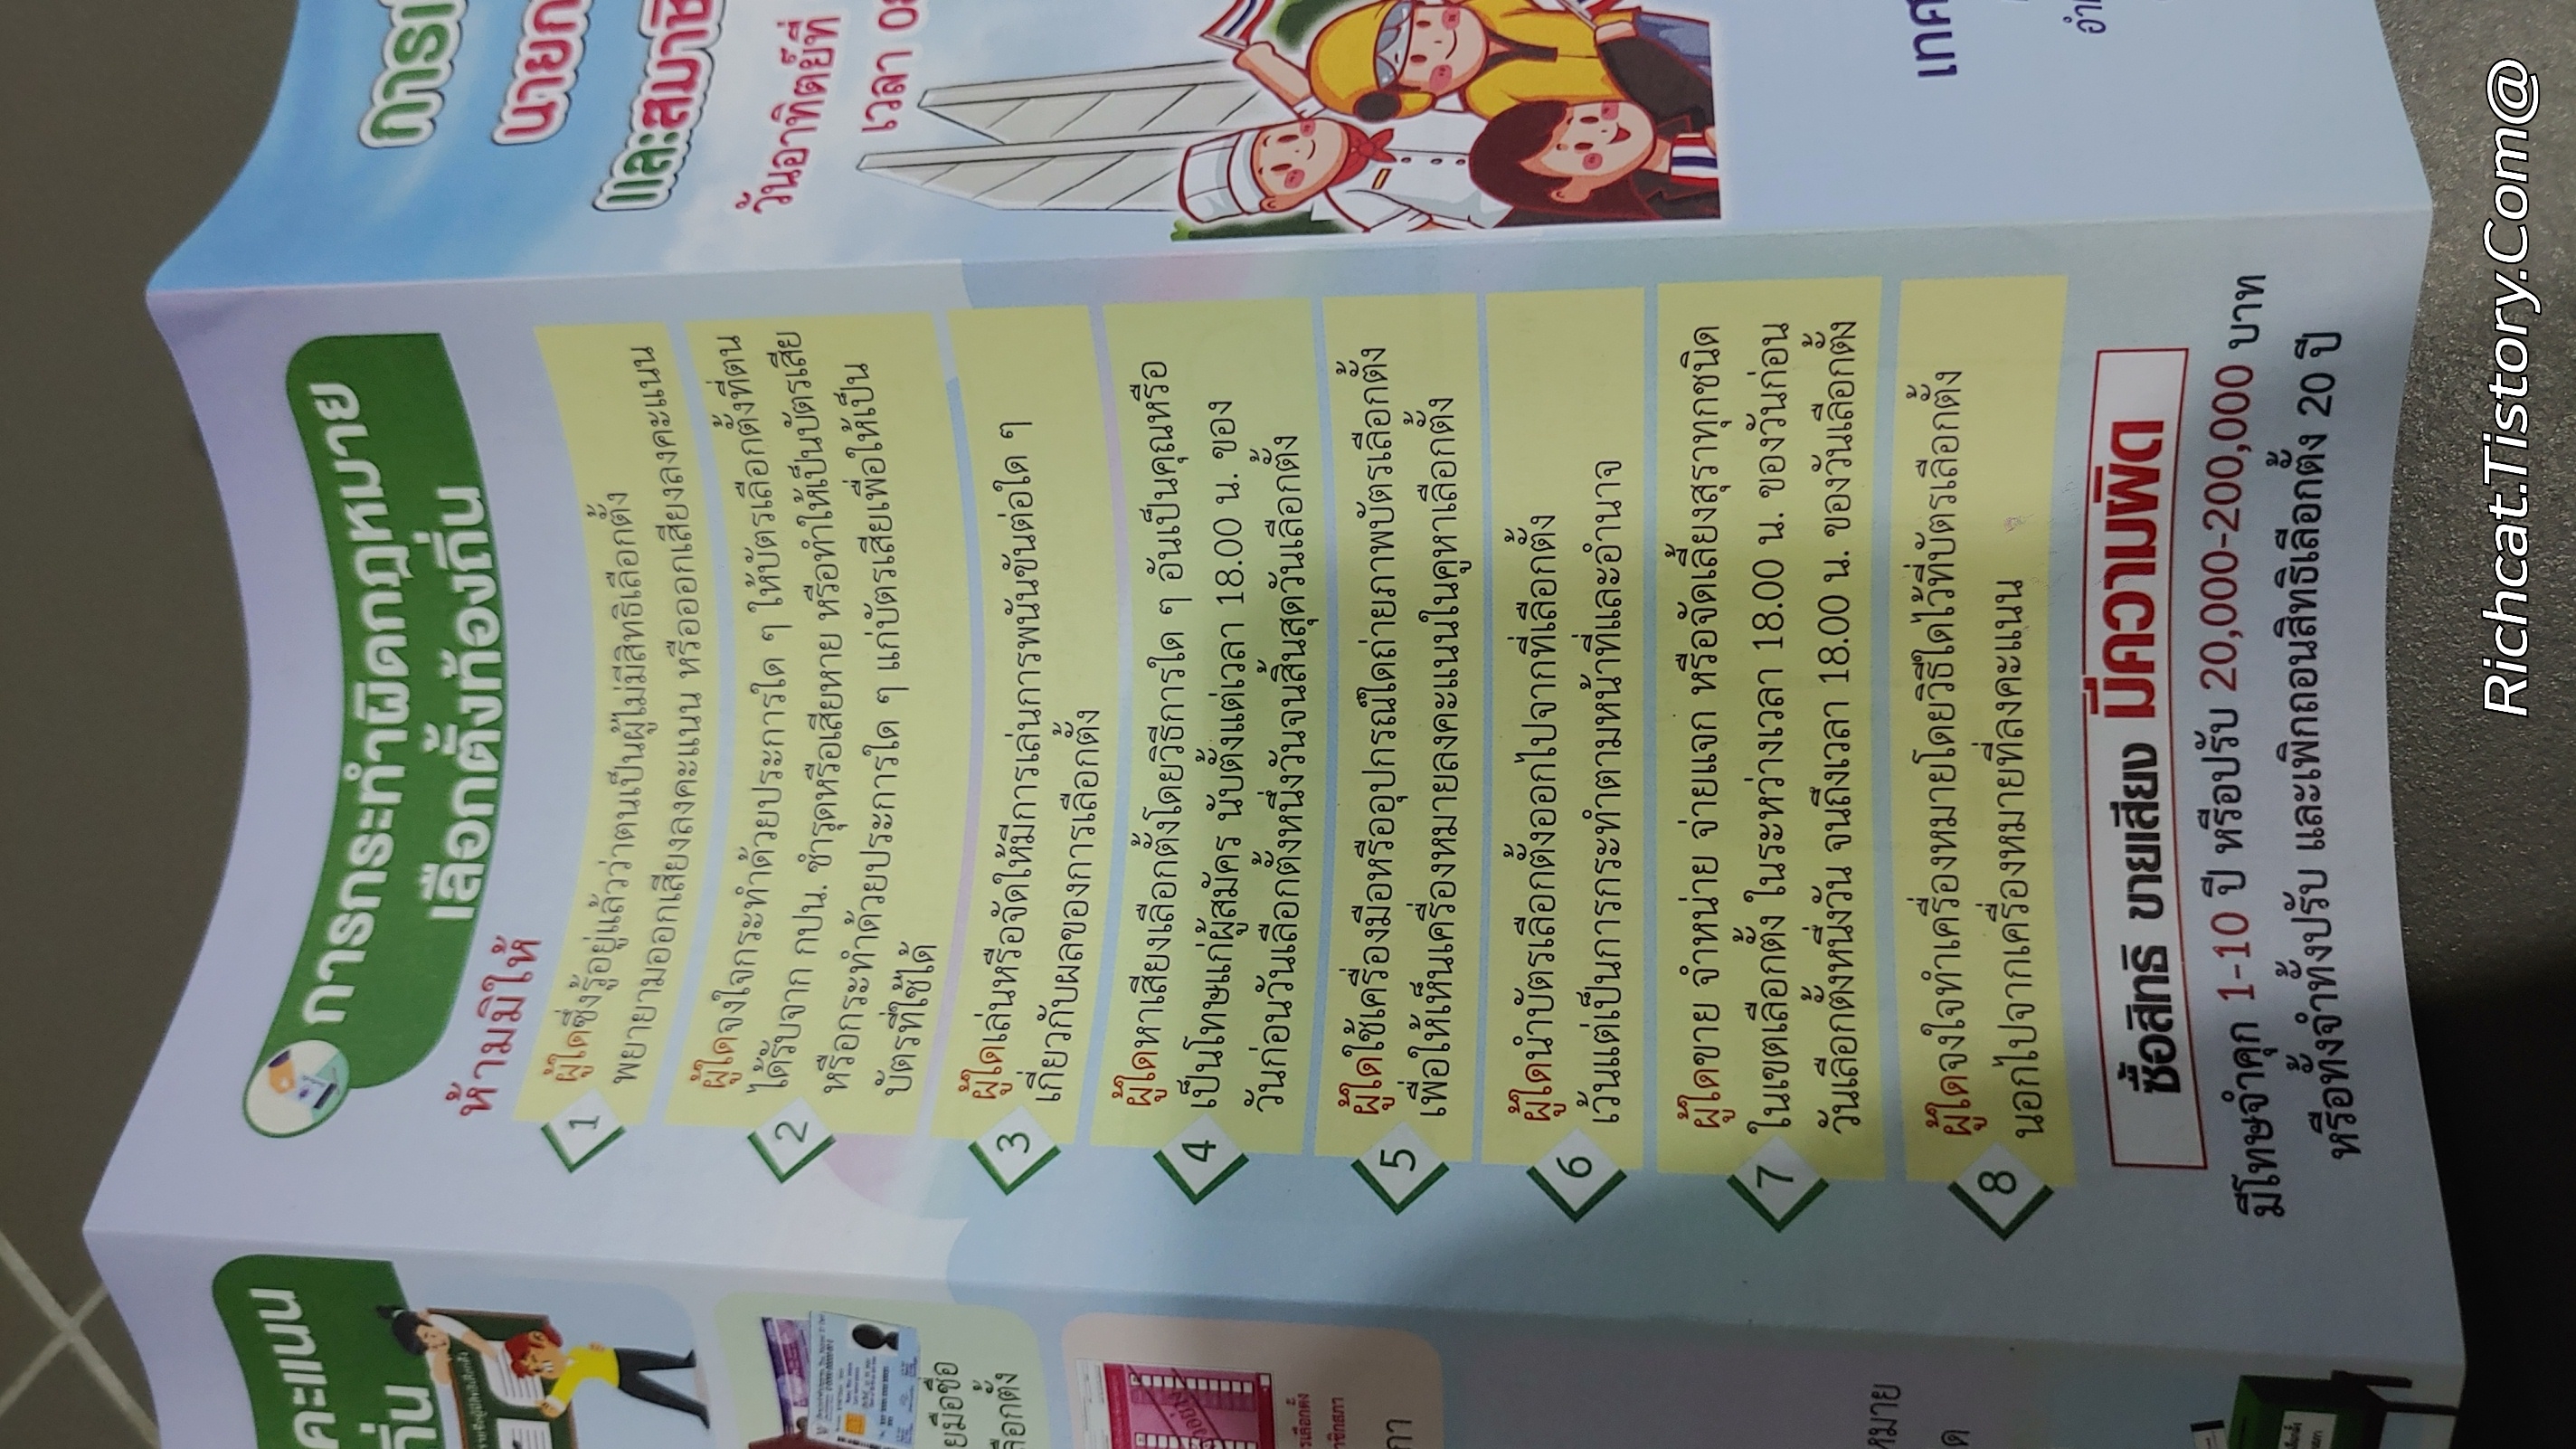 การกระทำผิดกฎหมาย
เลือกตั้งท้องถิ่น
ห้ามมิให้
1
ผู้ใดซึ่งรู้อยู่แล้วว่าตนเป็นผู้ไม่มีสิทธิเลือกตั้ง
พยายามออกเสียงลงคะแนน หรือออกเสียงลงคะแนน
2
ผู้ใดจงใจกระทำด้วยประการใด ๆ ให้บัตรเลือกตั้งที่ตน
ได้รับจาก กปน. ชำรุดหรือเสียหาย หรือทำให้เป็นบัตรเสีย
หรือกระทำด้วยประการใด ๆ แก่บัตรเสียเพื่อให้เป็น
บัตรที่ใช้ได้
3
ผู้ใดเล่นหรือจัดให้มีการเล่นการพนันขันต่อใด ๆ
เกี่ยวกับผลของการเลือกตั้ง
4
ผู้ใดหาเสียงเลือกตั้งโดยวิธีการใด ๆ อันเป็นคุณหรือ
เป็นโทษแก่ผู้สมัคร นับตั้งแต่เวลา 18.00 น. ของ
วันก่อนวันเลือกตั้งหนึ่งวันจนสิ้นสุดวันเลือกตั้ง
5
ผู้ใดใช้เครื่องมือหรืออุปกรณ์ใดถ่ายภาพบัตรเลือกตั้ง
เพื่อให้เห็นเครื่องหมายลงคะแนนในคูหาเลือกตั้ง
6
ผู้ใดนำบัตรเลือกตั้งออกไปจากที่เลือกตั้ง
เว้นแต่เป็นการกระทำตามหน้าที่และอำนาจ
7
ผู้ใดขาย จำหน่าย จ่ายแจก หรือจัดเลี้ยงสุราทุกชนิด
ในเขตเลือกตั้ง ในระหว่างเวลา 18.00 น. ของวันก่อน
วันเลือกตั้งหนึ่งวัน จนถึงเวลา 18.00 น. ของวันเลือกตั้ง
8
ผู้ใดจงใจทำเครื่องหมายโดยวิธีใดไว้ที่บัตรเลือกตั้ง
นอกไปจากเครื่องหมายที่ลงคะแนน
ซื้อสิทธิ ขายเสียง มีความผิด
มีโทษจำคุก 1-10 ปี หรือปรับ 20,000-200,000 บาท
หรือทั้งจำทั้งปรับ และเพิกถอนสิทธิเลือกตั้ง 20 ปี
การเ
นายก
และสมาชิ
วันอาทิตย์ที่
เวลา 08
เทศ
อำเ
คะแนน
ถิ่น
ยมือชื่อ
ลือกตั้ง
รเลือกตั้ง
าชิกสภา
กา
หมาย
ด
Richcat.Tistory.Com@